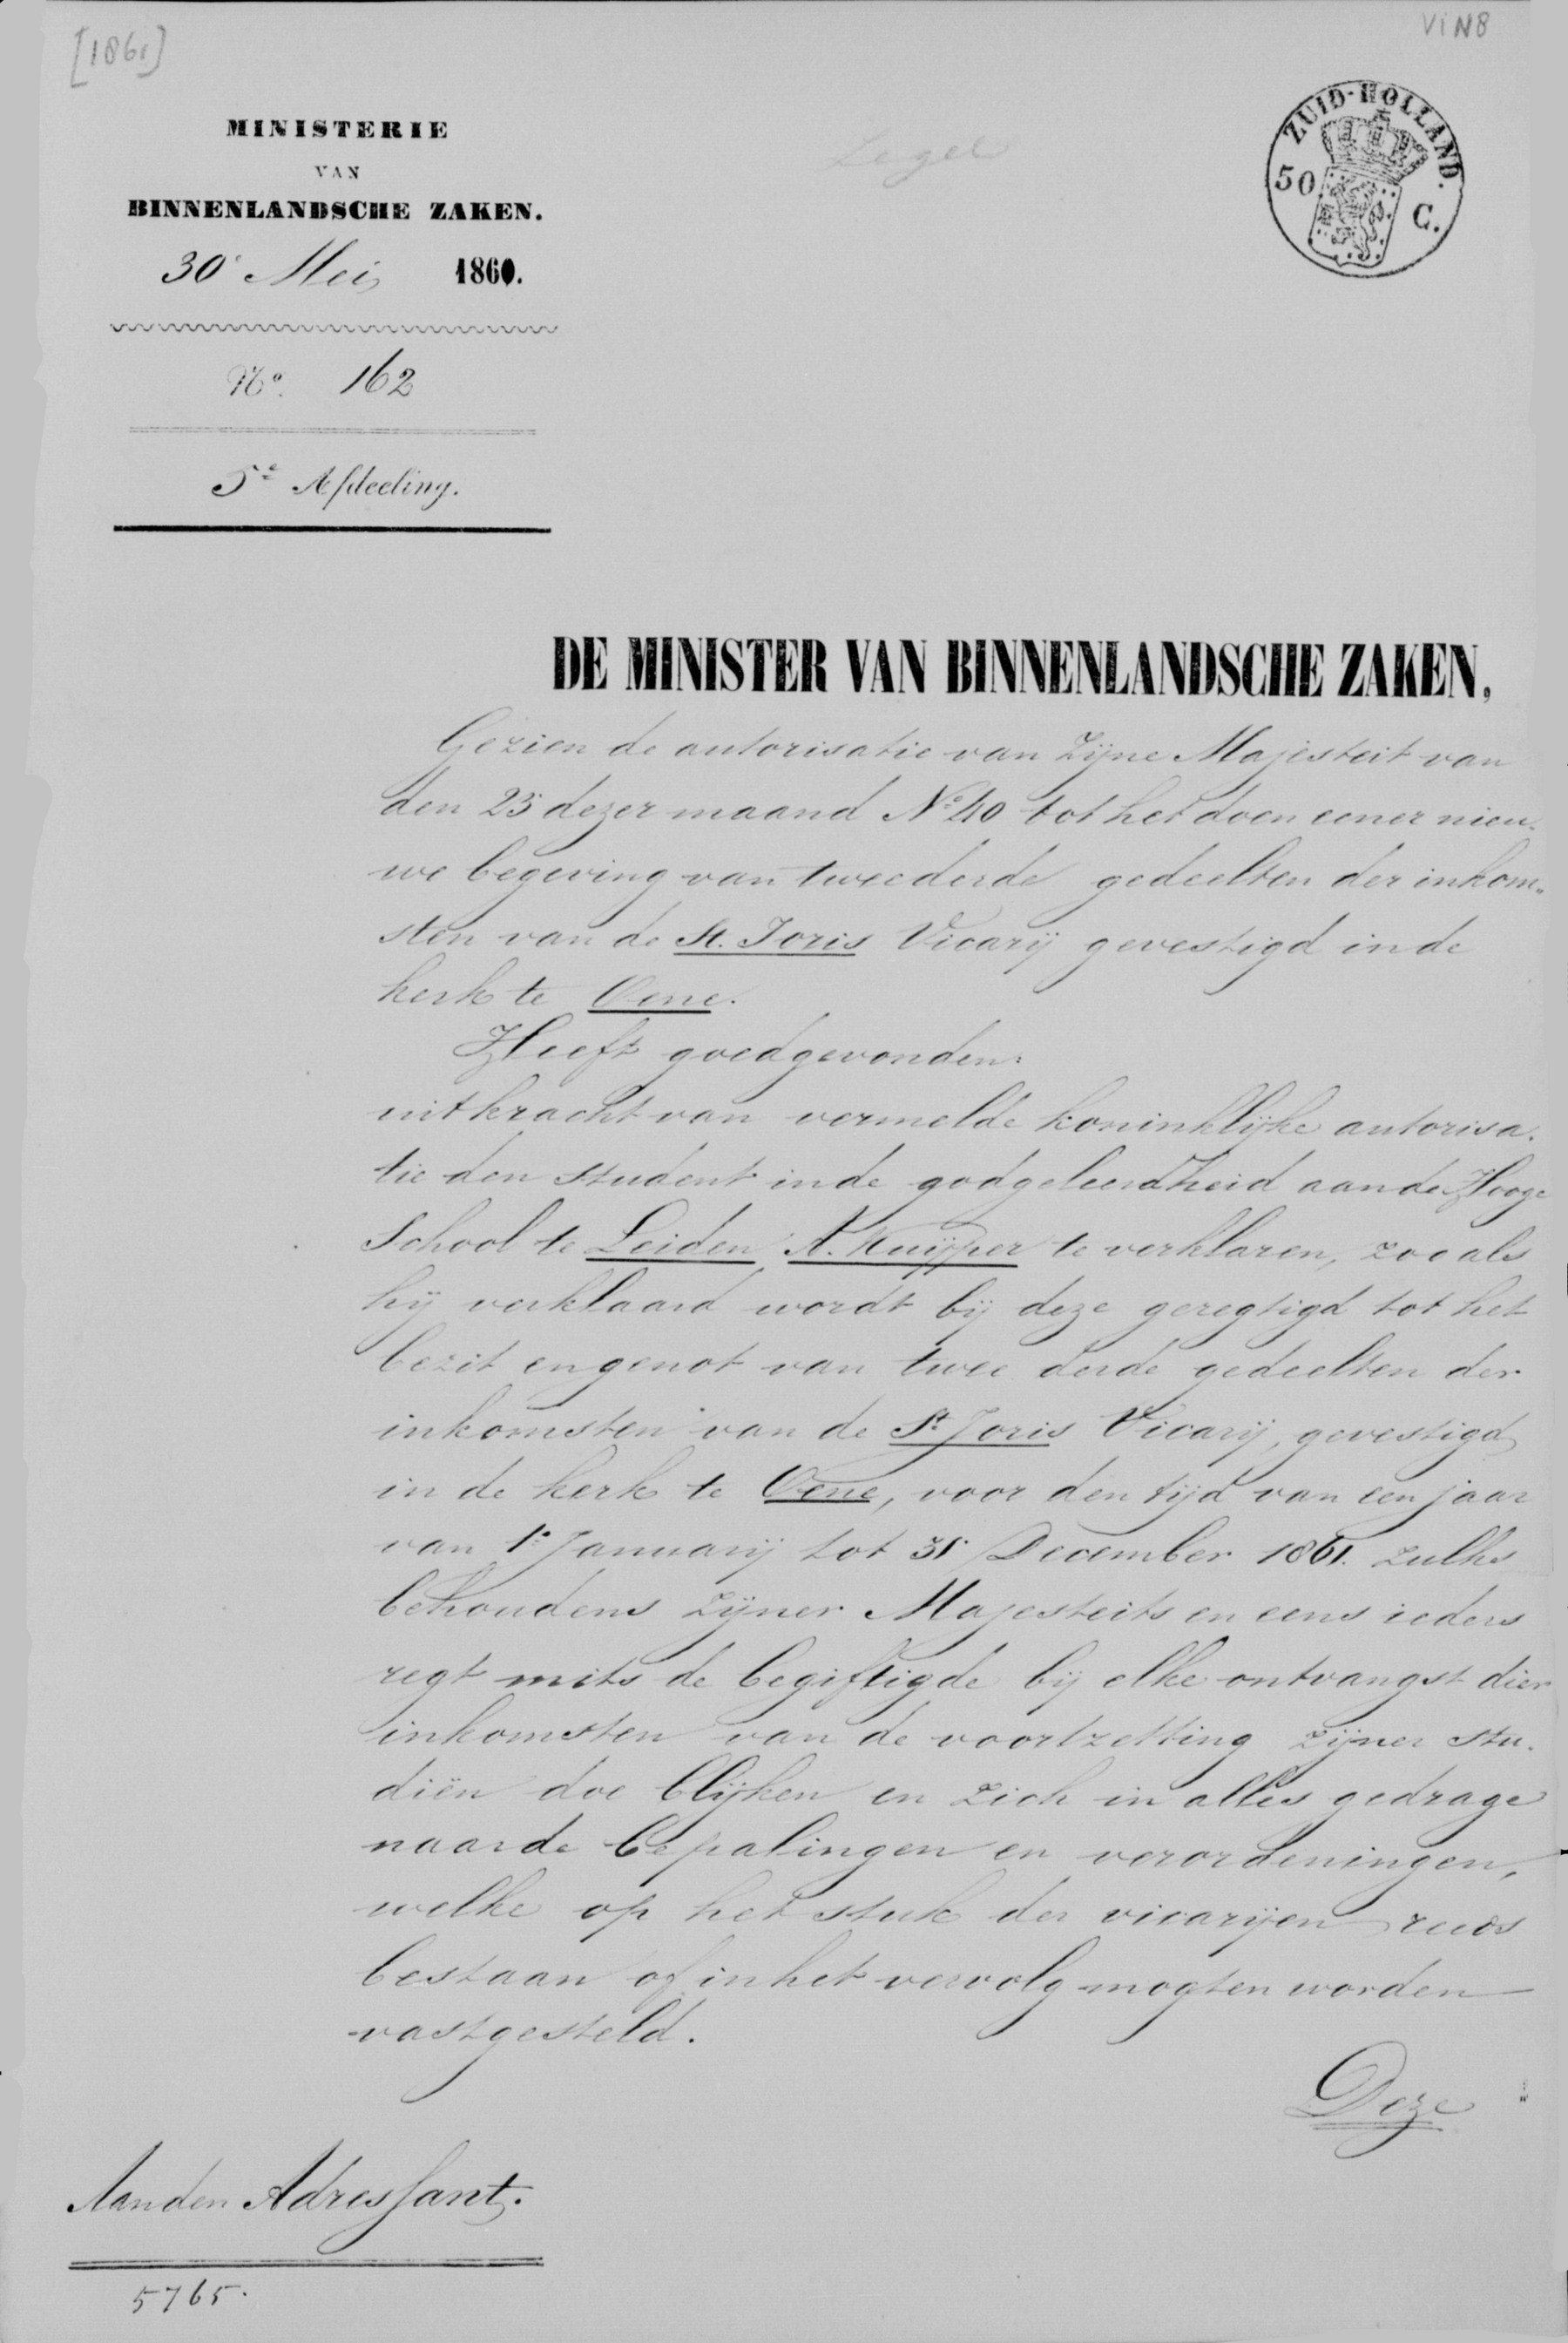 [1861]
VIN8
MINISTERIE
VAN
BINNENLANDSCHE ZAKEN.
30 Mei 1860.
No. 162
5e Afdeeling.
Zegel
ZUID-HOLLAND.
50 C.
DE MINISTER VAN BINNENLANDSCHE ZAKEN,
Gezien de autorisatie van Zijne Majesteit van
den 25 dezer maand No. 40 tot het doen eener nieu-
we begeving van tweederde gedeelten der inkom-
sten van de St. Joris Vicarij gevestigd in de
kerk te Oene.
Heeft goedgevonden:
uitkracht van vermelde koninklijke autorisa-
tie den student in de godgeleerdheid aan de Hooge
School te Leiden A. Kuijper te verklaren, zoo als
hij verklaard wordt bij deze geregtigd tot het
bezit en genot van twee derde gedeelten der
inkomsten van de St. Joris Vicarij, gevestigd
in de kerk te Oene, voor den tijd van een jaar
van 1e Januarij tot 31 December 1861. zulks
behoudens Zijner Majesteits en eens ieders
regt mits de begiftigde bij elke ontvangst dier
inkomsten van de voortzetting zijner stu-
diën doe blijken en zich in alles gedrage
naar de bepalingen en verordeningen,
welke op het stuk der vicarijen reeds
bestaan of in het vervolg mogten worden
vastgesteld.
Deze
Aan den Adressant.
5765.